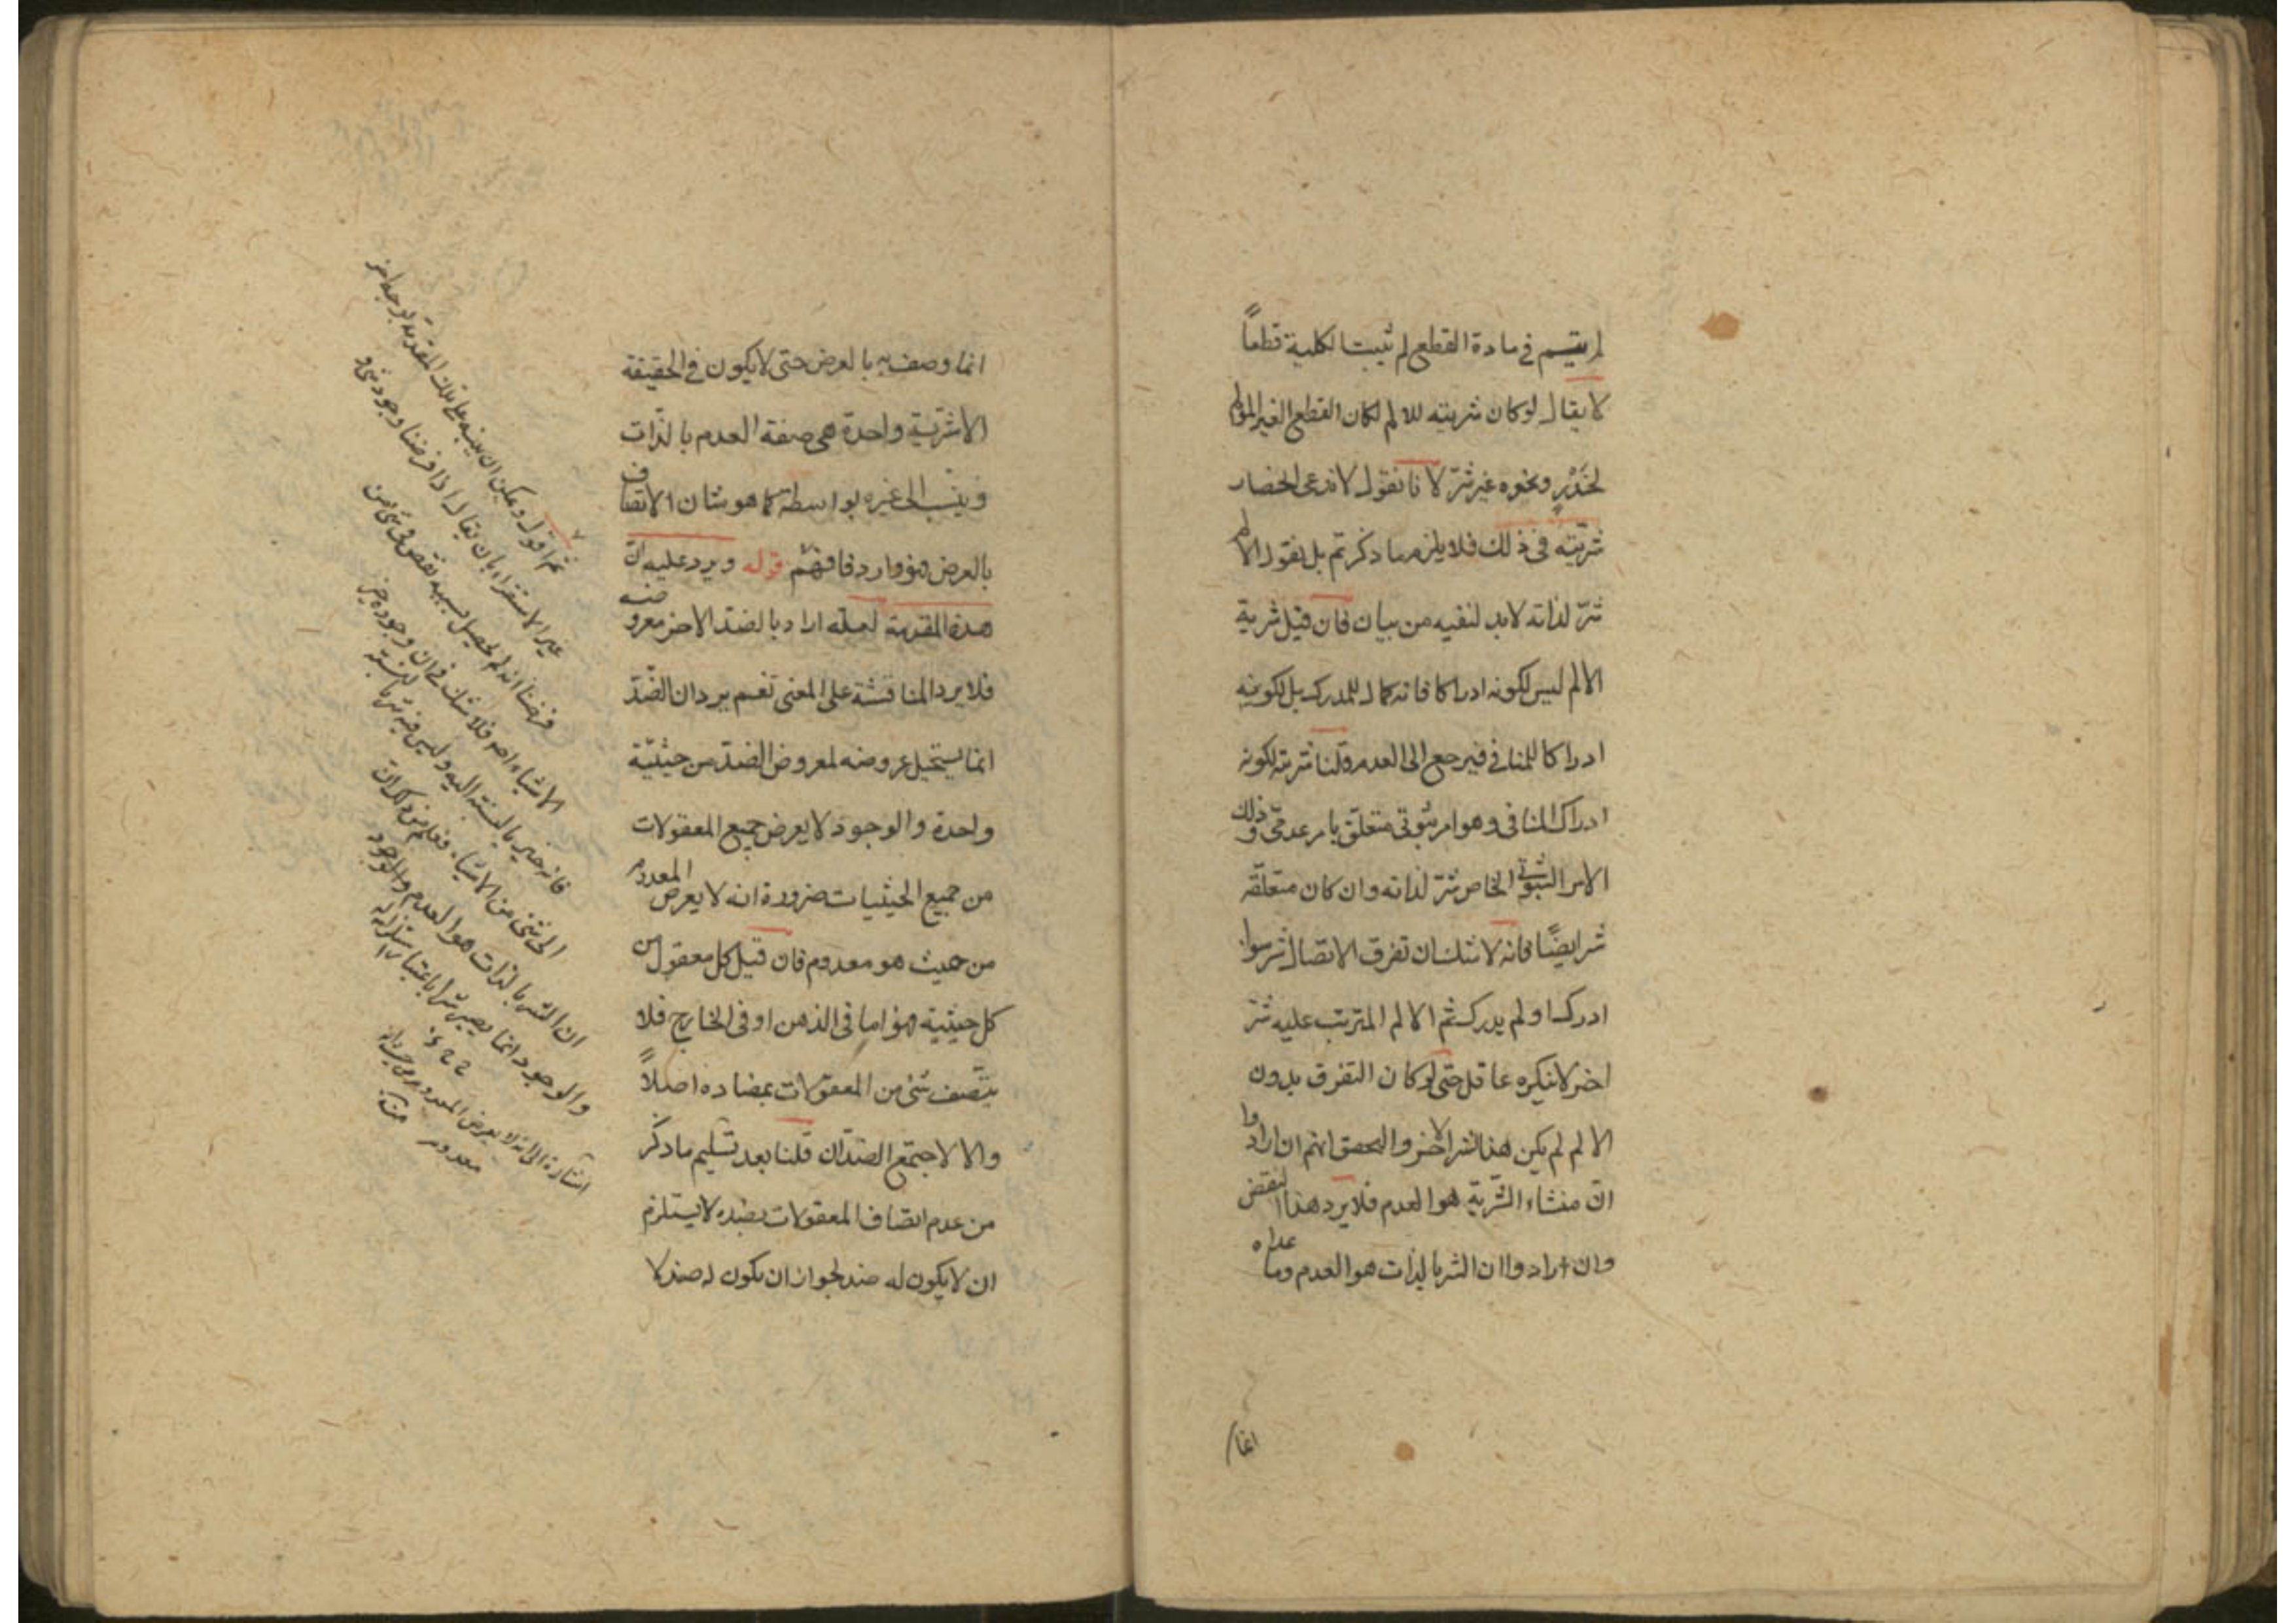 لم يقسم في مادة القطع لم تثبت الكلية قطعاً
لا يقال لو كان شريته للالم لكان القطع الغير المؤلم
لخدر ونحوه غير شر لانا نقول لا ندعى انحصار
شريته فى ذلك فلا يلزم ما ذكرتم بل نقول الالم
شر لذاته لابد لنفيه من بيان فان قيل شرية
الالم ليس لكونه ادراكا فانه كمال للمدرك بل لكونه
ادراكا للمنافي فيرجع الى العدم قلنا شريته لكونه
ادراك المنافى وهو امر ثبوتى متعلق بامر عدمى وذلك
الامر الثبوتى الخاص شر لذاته وان كان متعلقه
شرا ايضًا فانه لا شك ان تفرق الاتصال شر سواء
ادرك او لم يدرك ثم الالم المترتب عليه شر
اخر لا ينكره عاقل حتى لو كان التفرق بدون
الالم لم يكن هذا الشر الاخر والتحقق انهم ان ارادوا
ان منشاء الشرية هو العدم فلا يرد هذا النقض
وان ارادوا ان الشر بالذات هو العدم وما عداه
انما
انما وصف به بالعرض حتى لا يكون في الحقيقة
الا شرية واحدة هى صفة العدم بالذات
وينسب الى غيره بواسطته كما هو شان الاتصاف
بالعرض فهو وارد فافهم قوله ويرد عليه ان
هذه المقدمة لعله اراد بالضد الاخر معروضه
فلا يرد المناقشة على المعنى نعم يرد ان الضد
انما يستحيل عروضه لمعروض الضد من حيثية
واحدة والوجود لا يعرض جميع المعقولات
من جميع الحيثيات ضرورة انه لا يعرض المعدوم
من حيث هو معدوم فان قيل كل معقول من
كل حيثية فهو اما فى الذهن او فى الخارج فلا
يتصف شئ من المعقولات بمضاده اصلاً
والا لاجتمع الضدان قلنا بعد تسليم ما ذكر
من عدم اتصاف المعقولات بضده لا يستلزم
ان لا يكون له ضد لجواز ان يكون له ضد لا
ثم اقول ويمكن ان ينبه على تلك المقدمة بوجه اخر
غير الاستقراء بان يقال اذا فرضنا وجود شئ و
فرضنا انه لم يحصل بسببه نقص فى شئ من
الاشياء اصلا فلا شك فى ان وجوده خير
فانه خير بالنسبة اليه وليس فيه شر بالنسبة
الى شئ من الاشياء فعلم من ذلك ان
ان الشر بالذات هو العدم
والوجود انما يصير شرا باعتبار استلزامه له
اشارة الى انه لا يعرض المعدوم من حيث انه
معدوم